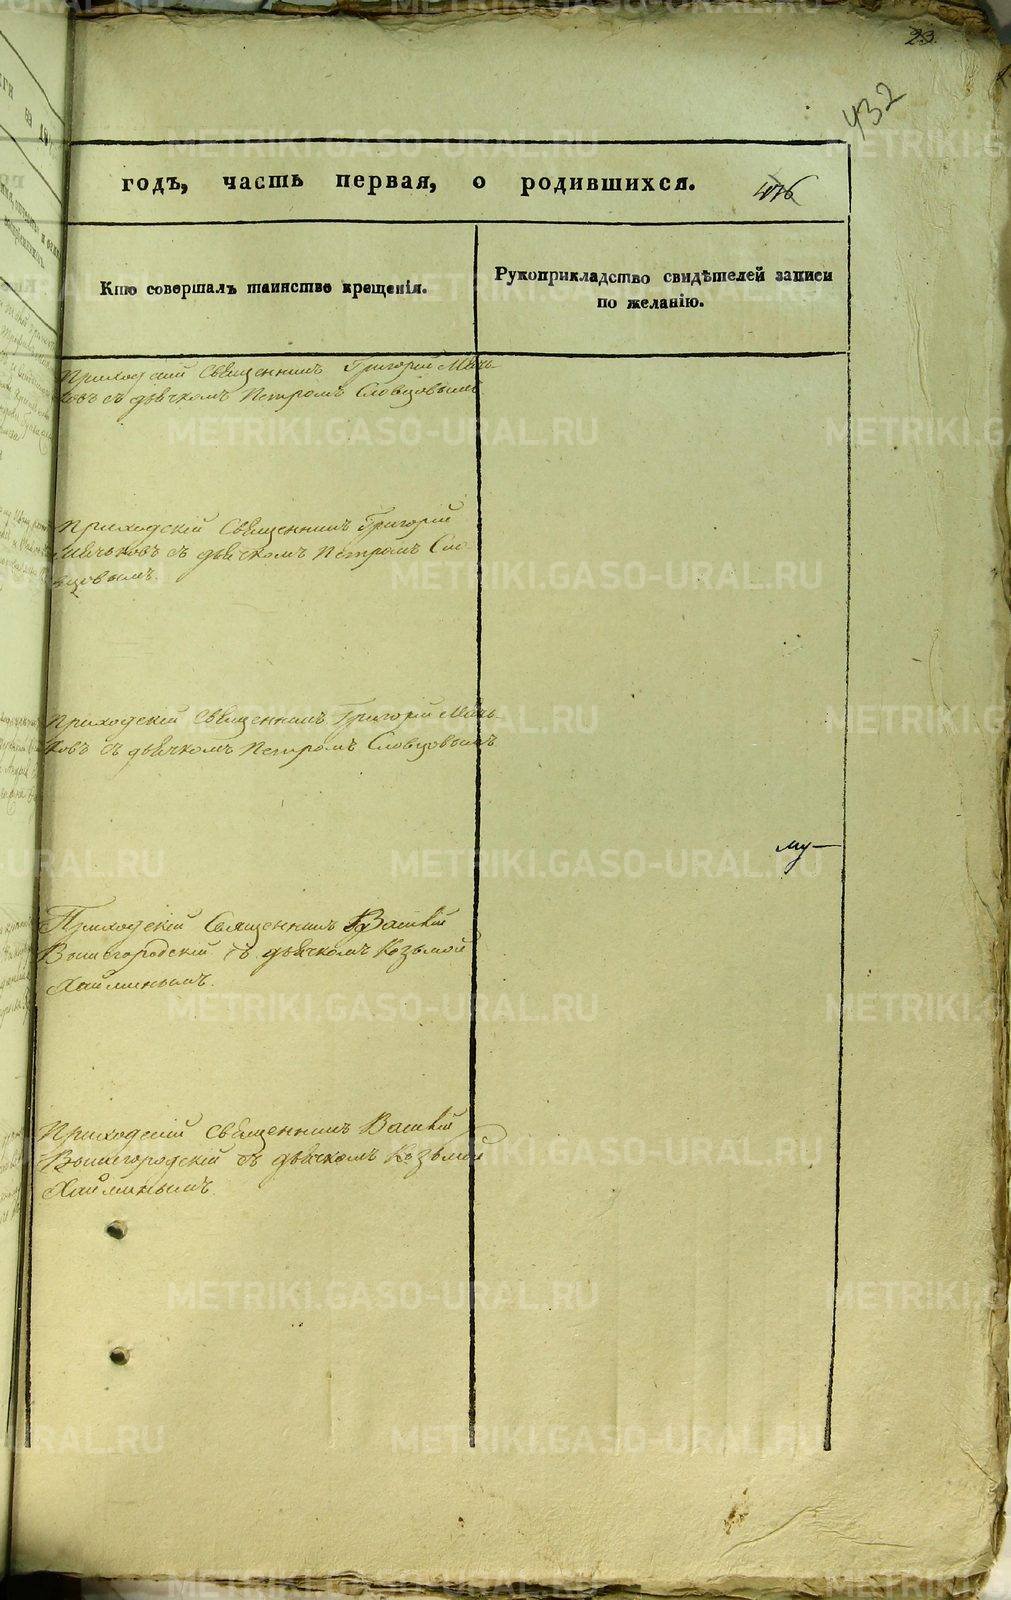 23.
432
годъ, часть первая, о родившихся. 416
Кто совершалъ таинство крещенія.
Рукоприкладство свидѣтелей записи
по желанію.
Приходскій Священникъ Григорій Мячь-
ковъ съ дьячкомъ Петромъ Словцовымъ
Приходскій Священникъ Григорій
Мячьковъ съ дьячкомъ Петромъ Сло-
вцовымъ.
Приходскій Священникъ Григорій Мячь-
ковъ съ дьячкомъ Петромъ Словцовымъ
му-
Приходскій Священникъ Василій
Вышегородскій съ дьячкомъ Козьмой
Хайминымъ.
Приходскій Священникъ Василій
Вышегородскій съ дьячкомъ Козьмой
Хайминымъ.
METRIKI.GASO-URAL.RU